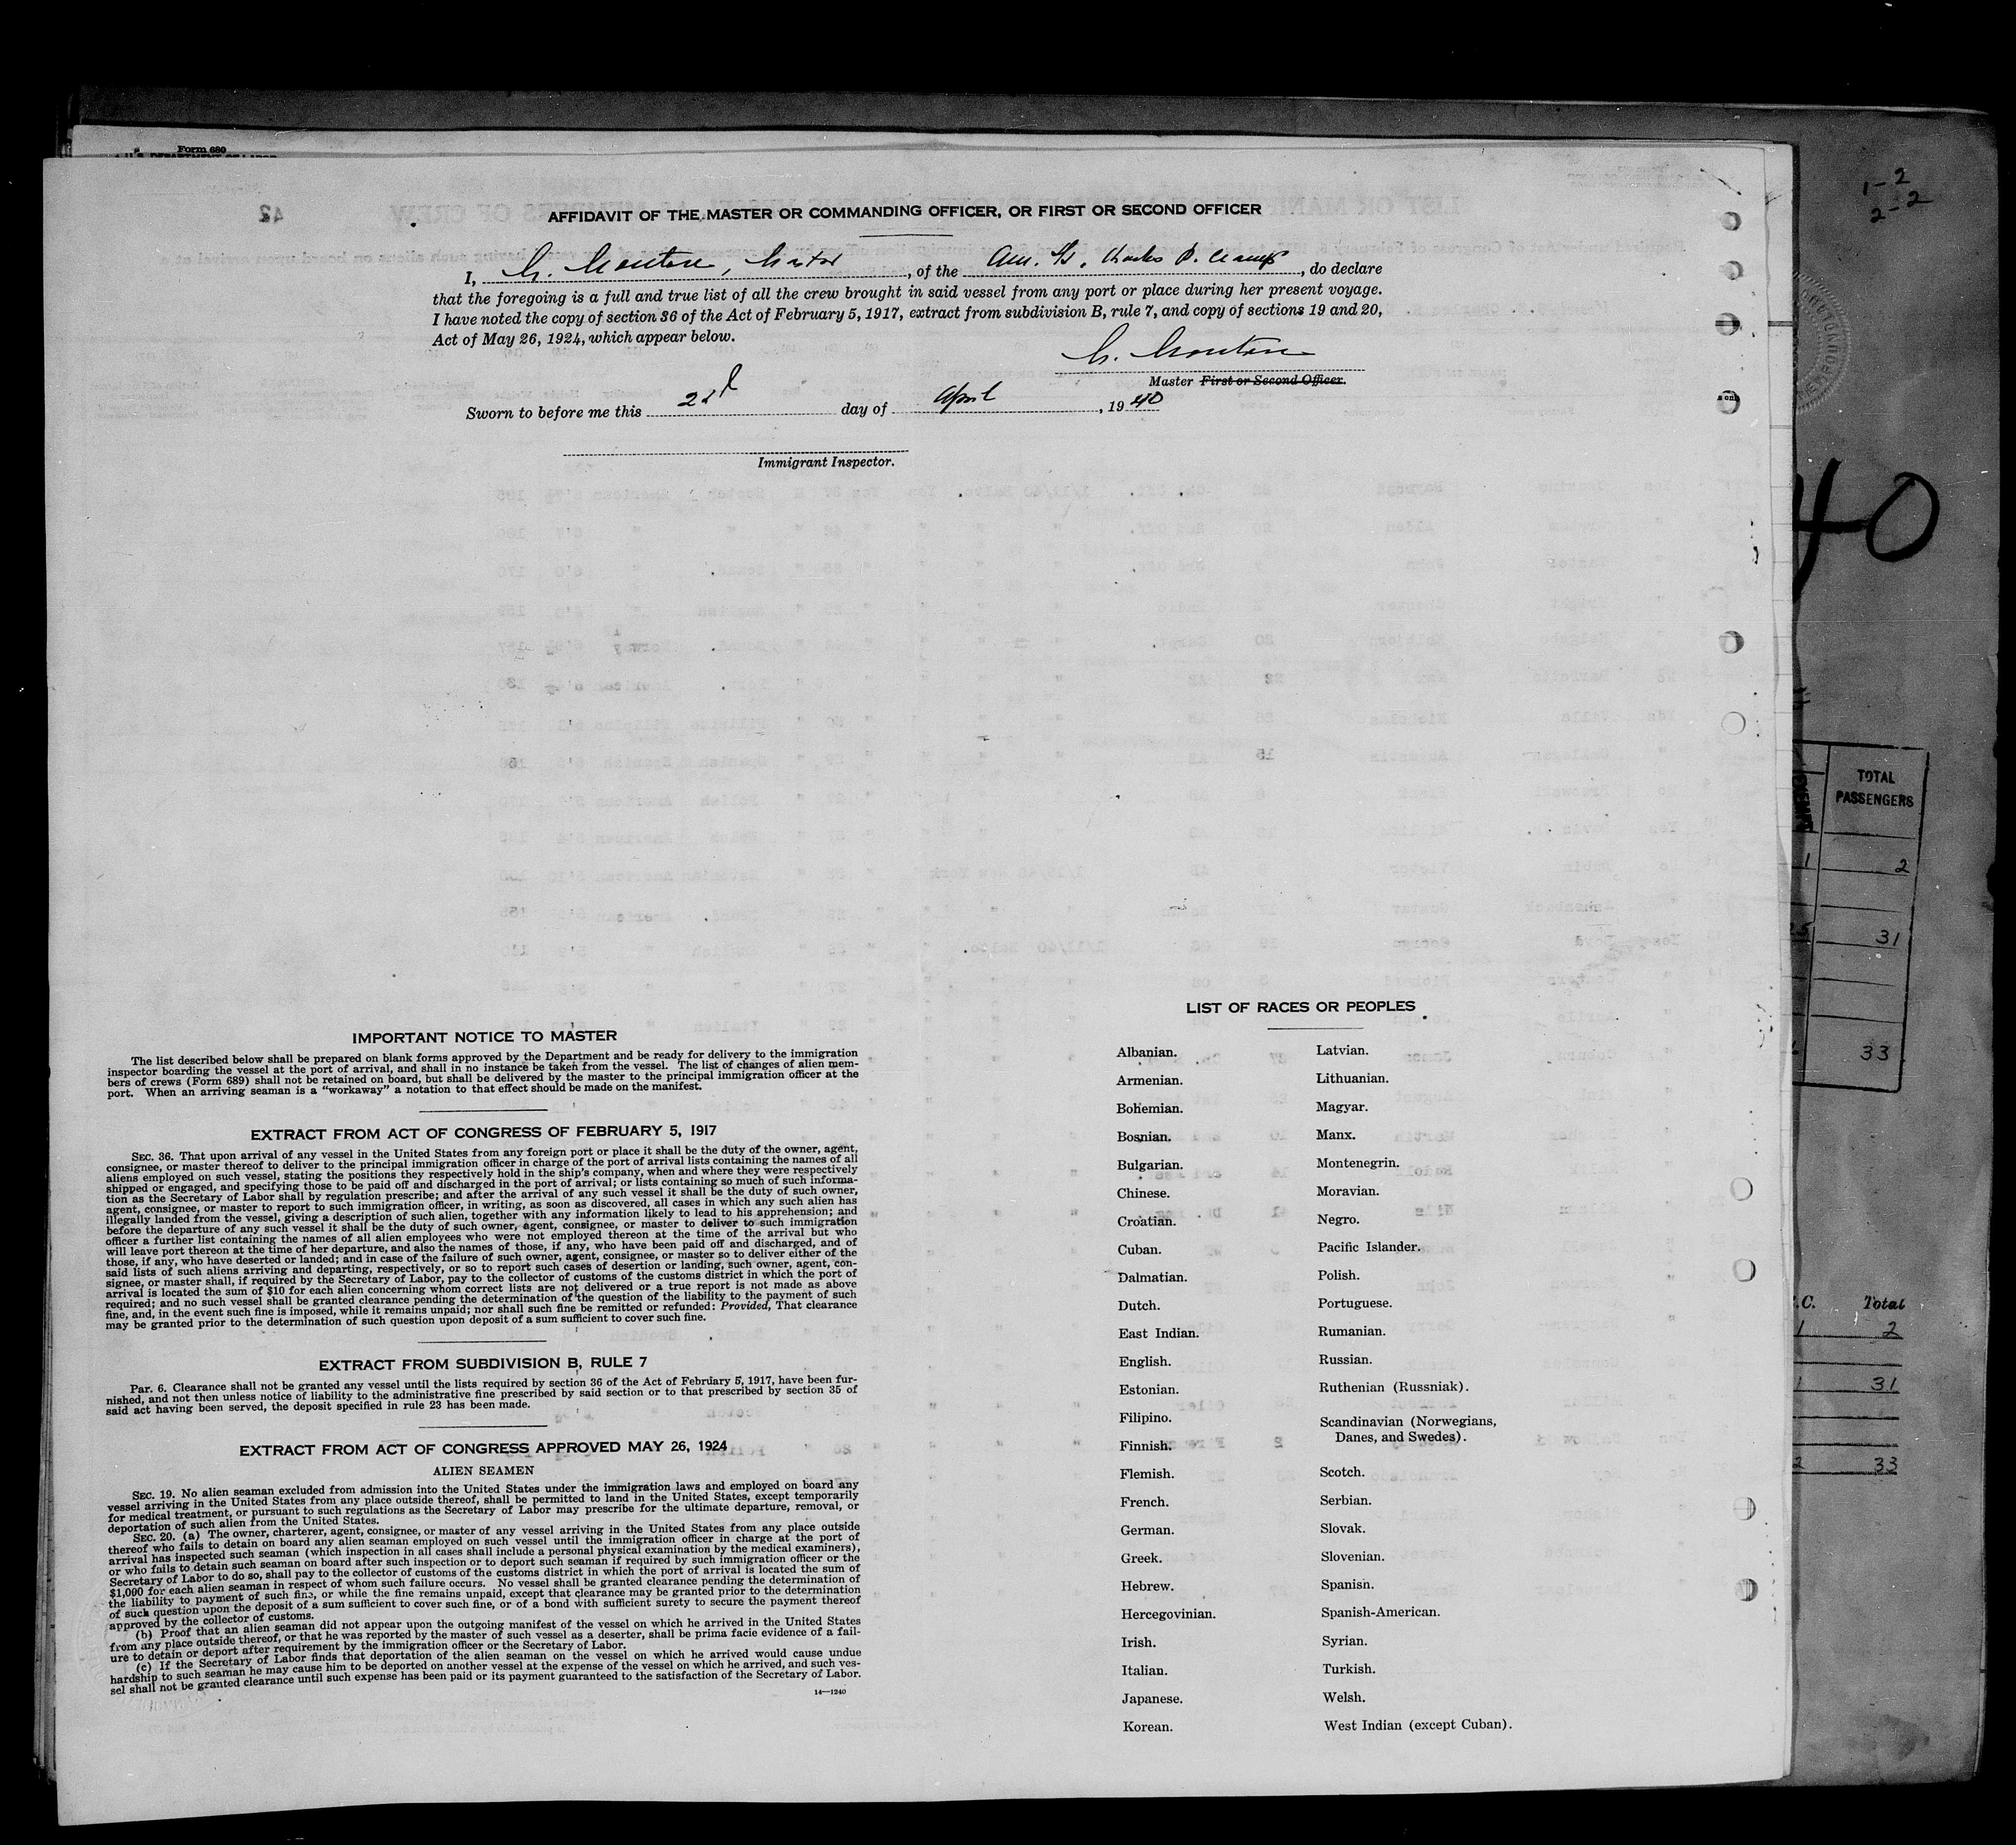 Form 689
U.S. DEPARTMENT OF LABOR
1-2
2-2
42
AFFIDAVIT OF THE MASTER OR COMMANDING OFFICER, OR FIRST OR SECOND OFFICER
I, , Master, of the Am. S/S. Charles P. Cramp, do declare
that the foregoing is a full and true list of all the crew brought in said vessel from any port or place during her present voyage.
I have noted the copy of section 36 of the Act of February 5, 1917, extract from subdivision B, rule 7, and copy of sections 19 and 20,
Act of May 26, 1924, which appear below.
Master First or Second Officer.
Sworn to before me this 22d day of April, 1940
Immigrant Inspector.
40
IMPORTANT NOTICE TO MASTER
The list described below shall be prepared on blank forms approved by the Department and be ready for delivery to the immigration
inspector boarding the vessel at the port of arrival, and shall in no instance be taken from the vessel. The list of changes of alien mem-
bers of crews (Form 689) shall not be retained on board, but shall be delivered by the master to the principal immigration officer at the
port. When an arriving seaman is a "workaway" a notation to that effect should be made on the manifest.
EXTRACT FROM ACT OF CONGRESS OF FEBRUARY 5, 1917
SEC. 36. That upon arrival of any vessel in the United States from any foreign port or place it shall be the duty of the owner, agent,
consignee, or master thereof to deliver to the principal immigration officer in charge of the port of arrival lists containing the names of all
aliens employed on such vessel, stating the positions they respectively hold in the ship's company, when and where they were respectively
shipped or engaged, and specifying those to be paid off and discharged in the port of arrival; or lists containing so much of such informa-
tion as the Secretary of Labor shall by regulation prescribe; and after the arrival of any such vessel it shall be the duty of such owner,
agent, consignee, or master to report to such immigration officer, in writing, as soon as discovered, all cases in which any such alien has
illegally landed from the vessel, giving a description of such alien, together with any information likely to lead to his apprehension; and
before the departure of any such vessel it shall be the duty of such owner, agent, consignee, or master to deliver to such immigration
officer a further list containing the names of all alien employees who were not employed thereon at the time of the arrival but who
will leave port thereon at the time of her departure, and also the names of those, if any, who have been paid off and discharged, and of
those, if any, who have deserted or landed; and in case of the failure of such owner, agent, consignee, or master so to deliver either of the
said lists of such aliens arriving and departing, respectively, or so to report such cases of desertion or landing, such owner, agent, con-
signee, or master shall, if required by the Secretary of Labor, pay to the collector of customs of the customs district in which the port of
arrival is located the sum of $10 for each alien concerning whom correct lists are not delivered or a true report is not made as above
required; and no such vessel shall be granted clearance pending the determination of the question of the liability to the payment of such
fine, and, in the event such fine is imposed, while it remains unpaid; nor shall such fine be remitted or refunded: Provided, That clearance
may be granted prior to the determination of such question upon deposit of a sum sufficient to cover such fine.
EXTRACT FROM SUBDIVISION B, RULE 7
Par. 6. Clearance shall not be granted any vessel until the lists required by section 36 of the Act of February 5, 1917, have been fur-
nished, and not then unless notice of liability to the administrative fine prescribed by said section or to that prescribed by section 35 of
said act having been served, the deposit specified in rule 23 has been made.
EXTRACT FROM ACT OF CONGRESS APPROVED MAY 26, 1924
ALIEN SEAMEN
SEC. 19. No alien seaman excluded from admission into the United States under the immigration laws and employed on board any
vessel arriving in the United States from any place outside thereof, shall be permitted to land in the United States, except temporarily
for medical treatment, or pursuant to such regulations as the Secretary of Labor may prescribe for the ultimate departure, removal, or
deportation of such alien from the United States.
SEC. 20. (a) The owner, charterer, agent, consignee, or master of any vessel arriving in the United States from any place outside
thereof who fails to detain on board any alien seaman employed on such vessel until the immigration officer in charge at the port of
arrival has inspected such seaman (which inspection in all cases shall include a personal physical examination by the medical examiners),
or who fails to detain such seaman on board after such inspection or to deport such seaman if required by such immigration officer or the
Secretary of Labor to do so, shall pay to the collector of customs of the customs district in which the port of arrival is located the sum of
$1,000 for each alien seaman in respect of whom such failure occurs. No vessel shall be granted clearance pending the determination of
the liability to payment of such fine, or while the fine remains unpaid, except that clearance may be granted prior to the determination
of such question upon the deposit of a sum sufficient to cover such fine, or of a bond with sufficient surety to secure the payment thereof
approved by the collector of customs.
(b) Proof that an alien seaman did not appear upon the outgoing manifest of the vessel on which he arrived in the United States
from any place outside thereof, or that he was reported by the master of such vessel as a deserter, shall be prima facie evidence of a fail-
ure to detain or deport after requirement by the immigration officer or the Secretary of Labor.
(c) If the Secretary of Labor finds that deportation of the alien seaman on the vessel on which he arrived would cause undue
hardship to such seaman he may cause him to be deported on another vessel at the expense of the vessel on which he arrived, and such ves-
sel shall not be granted clearance until such expense has been paid or its payment guaranteed to the satisfaction of the Secretary of Labor.
14—1240
LIST OF RACES OR PEOPLES
Albanian.
Armenian.
Bohemian.
Bosnian.
Bulgarian.
Chinese.
Croatian.
Cuban.
Dalmatian.
Dutch.
East Indian.
English.
Estonian.
Filipino.
Finnish.
Flemish.
French.
German.
Greek.
Hebrew.
Hercegovinian.
Irish.
Italian.
Japanese.
Korean.
Latvian.
Lithuanian.
Magyar.
Manx.
Montenegrin.
Moravian.
Negro.
Pacific Islander.
Polish.
Portuguese.
Rumanian.
Russian.
Ruthenian (Russniak).
Scandinavian (Norwegians,
Danes, and Swedes).
Scotch.
Serbian.
Slovak.
Slovenian.
Spanish.
Spanish-American.
Syrian.
Turkish.
Welsh.
West Indian (except Cuban).
TOTAL
PASSENGERS
1 2
31
33
.C. Total
1 2
1 31
2 33